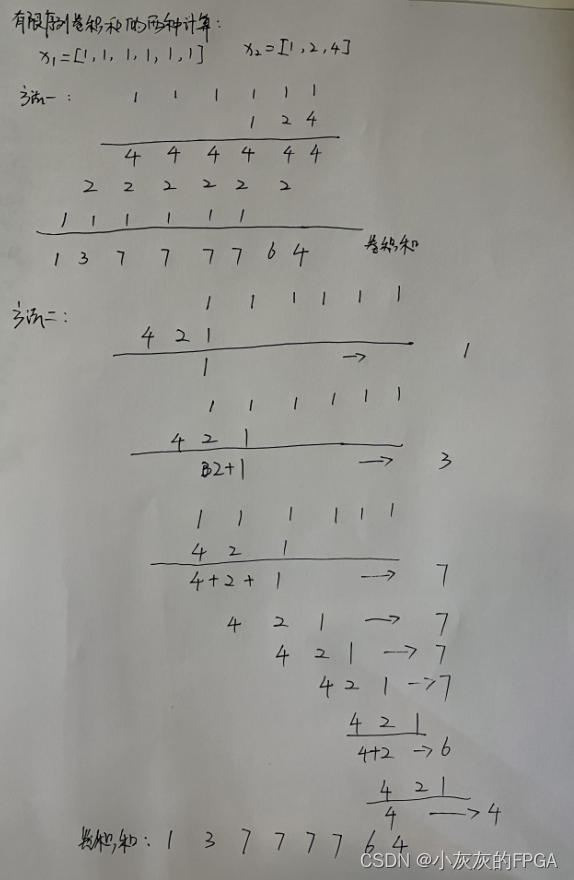 有限序列卷积和的两种计算:
x₁=[1,1,1,1,1,1] x₂=[1,2,4]
方法一: 1 1 1 1 1 1
1 2 4
4 4 4 4 4 4
2 2 2 2 2 2
1 1 1 1 1 1
1 3 7 7 7 7 6 4 卷积和
1 1 1 1 1 1
方法二:
4 2 1
1 → 1
1 1 1 1 1 1
4 2 1
2+1 → 3
1 1 1 1 1 1
4 2 1
4+2+1 → 7
4 2 1 → 7
4 2 1 → 7
4 2 1 → 7
4 2 1
4+2 → 6
4 2 1
4 → 4
卷积和: 1 3 7 7 7 7 6 4
CSDN @小灰灰的FPGA